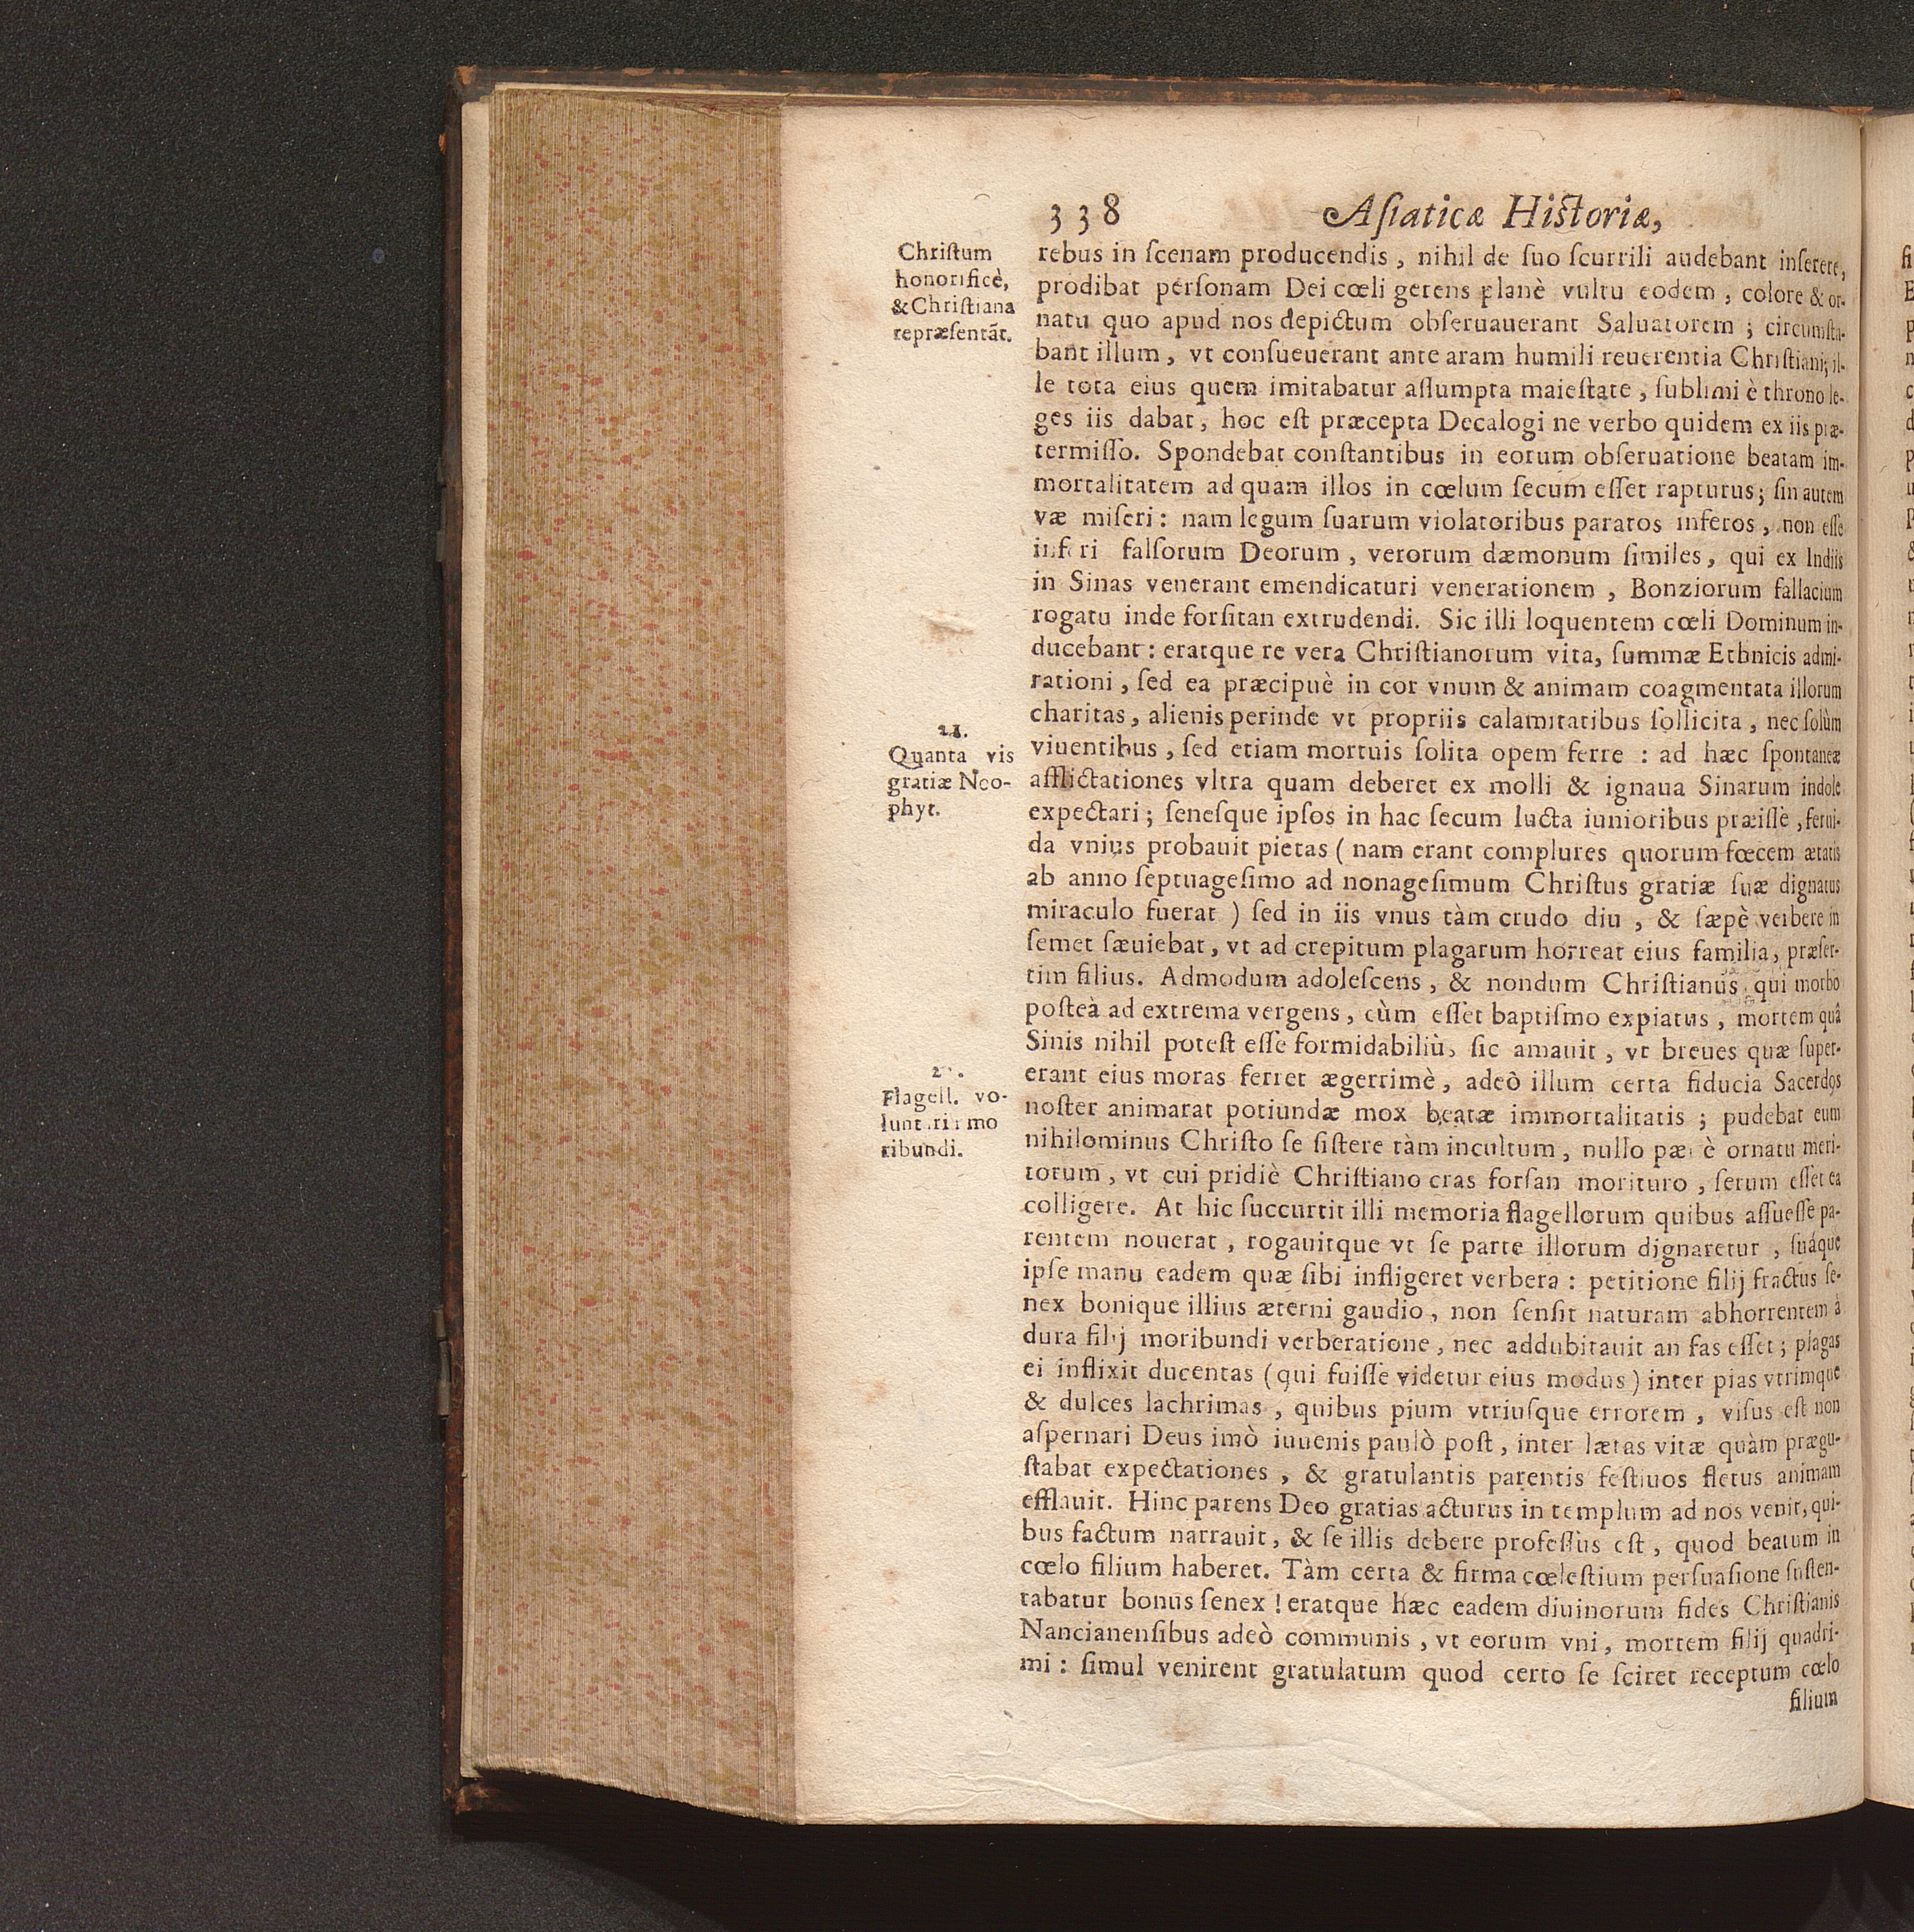 338 Aſiaticæ Hiſtoriæ,
Chriſtum
honorificè,
& Chriſtiana
repræſentāt.
rebus in ſcenam producendis, nihil de ſuo ſcurrili audebant inſerere,
prodibat perſonam Dei cœli gerens planè vultu eodem, colore & or-
natu quo apud nos depictum obſeruauerant Saluatorem; circumſta-
bant illum, vt conſueuerant ante aram humili reuerentia Chriſtiani; il-
le tota eius quem imitabatur aſſumpta maieſtate, ſublimi è throno le-
ges iis dabat, hoc eſt præcepta Decalogi ne verbo quidem ex iis præ-
termiſſo. Spondebat conſtantibus in eorum obſeruatione beatam im-
mortalitatem ad quam illos in cœlum ſecum eſſet rapturus; ſin autem
væ miſeri: nam legum ſuarum violatoribus paratos inferos, non eſſe
inferi falſorum Deorum, verorum dæmonum ſimiles, qui ex Indiis
in Sinas venerant emendicaturi venerationem, Bonziorum fallacium
rogatu inde forſitan extrudendi. Sic illi loquentem cœli Dominum in-
ducebant: eratque re vera Chriſtianorum vita, ſummæ Ethnicis admi-
rationi, ſed ea præcipuè in cor vnum & animam coagmentata illorum
charitas, alienis perinde vt propriis calamitatibus ſollicita, nec ſolùm
21.
Quanta vis
gratiæ Neo-
phyt.
viuentibus, ſed etiam mortuis ſolita opem ferre: ad hæc ſpontaneæ
afflictationes vltra quam deberet ex molli & ignaua Sinarum indole
expectari; ſeneſque ipſos in hac ſecum lucta iunioribus præiſſe, ferui-
da vnius probauit pietas (nam erant complures quorum fœcem ætatis
ab anno ſeptuageſimo ad nonageſimum Chriſtus gratiæ ſuæ dignatus
miraculo fuerat) ſed in iis vnus tàm crudo diu, & ſæpè verbere in
ſemet ſæuiebat, vt ad crepitum plagarum horreat eius familia, præſer-
tim filius. Admodum adoleſcens, & nondum Chriſtianus qui morbo
poſteà ad extrema vergens, cùm eſſet baptiſmo expiatus, mortem quâ
Sinis nihil poteſt eſſe formidabiliù, ſic amauit, vt breues quæ ſuper-
Flagell. vo-
luntarii mo
ribundi.
erant eius moras ferret ægerrimè, adeò illum certa fiducia Sacerdos
noſter animarat potiundæ mox beatæ immortalitatis; pudebat eum
nihilominus Chriſto ſe ſiſtere tàm incultum, nullo pænè ornatu meri-
torum, vt cui pridiè Chriſtiano cras forſan morituro, ſerum eſſet ea
colligere. At hic ſuccurrit illi memoria flagellorum quibus aſſueſſe pa-
rentem nouerat, rogauitque vt ſe parte illorum dignaretur, ſuáque
ipſe manu eadem quæ ſibi infligeret verbera: petitione filij fractus ſe-
nex bonique illius æterni gaudio, non ſenſit naturam abhorrentem à
dura filij moribundi verberatione, nec addubitauit an fas eſſet; plagas
ei inflixit ducentas (qui fuiſſe videtur eius modus) inter pias vtrimque
& dulces lachrimas, quibus pium vtriuſque errorem, viſus eſt non
aſpernari Deus imò iuuenis paulò poſt, inter lætas vitæ quàm prægu-
ſtabat expectationes, & gratulantis parentis feſtiuos fletus animam
efflauit. Hinc parens Deo gratias acturus in templum ad nos venit, qui-
bus factum narrauit, & ſe illis debere profeſſus eſt, quod beatum in
cœlo filium haberet. Tàm certa & firma cœleſtium perſuaſione ſuſten-
tabatur bonus ſenex! eratque hæc eadem diuinorum fides Chriſtianis
Nancianenſibus adeò communis, vt eorum vni, mortem filij quadri-
mi: ſimul venirent gratulatum quod certo ſe ſciret receptum cœlo
filium